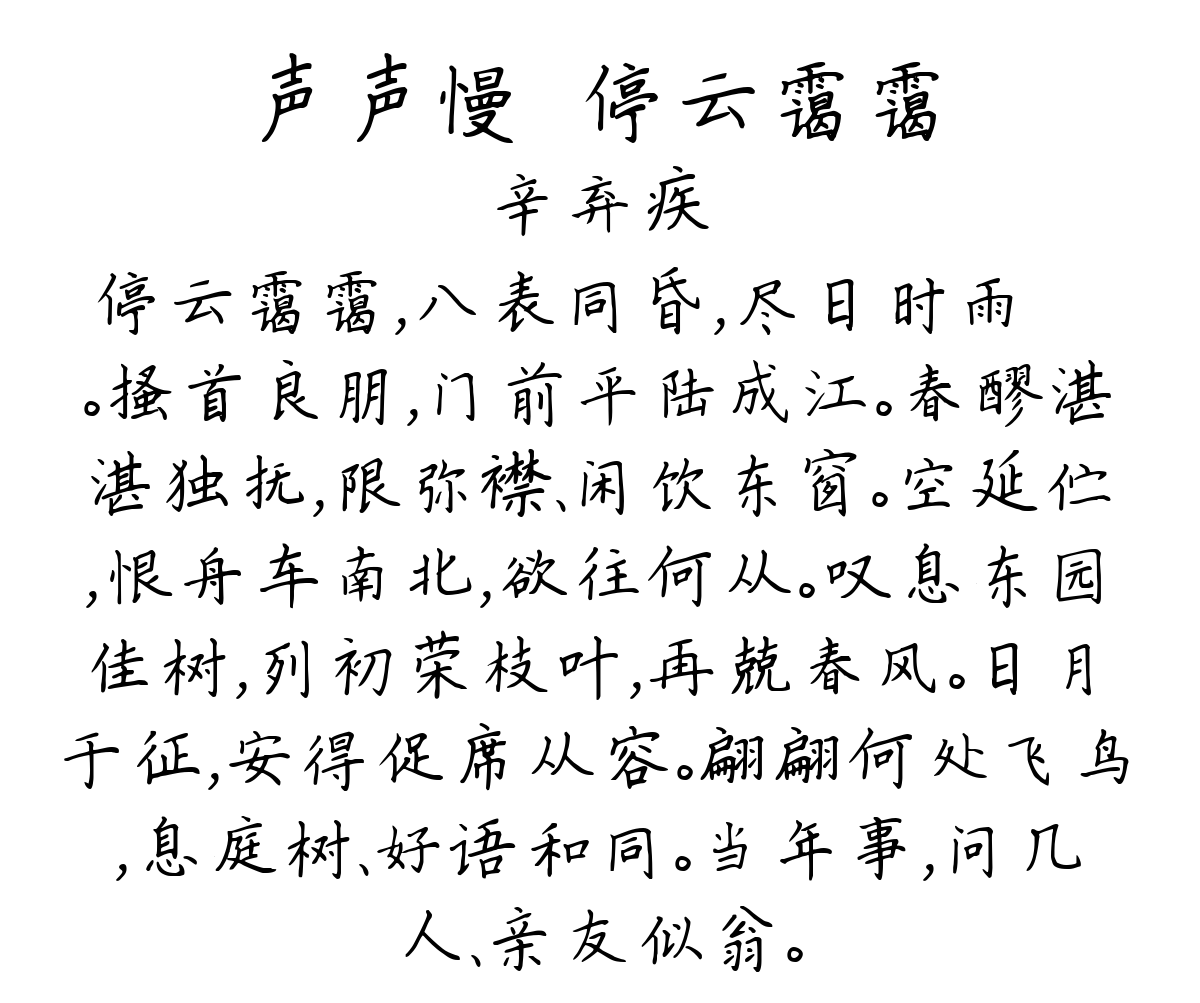 声声慢 停云霭霭
辛弃疾
停云霭霭,八表同昏,尽日时雨
。搔首良朋,门前平陆成江。春醪湛
湛独抚,限弥襟、闲饮东窗。空延伫
,恨舟车南北,欲往何从。叹息东园
佳树,列初荣枝叶,再兢春风。日月
于征,安得促席从容。翩翩何处飞鸟
,息庭树、好语和同。当年事,问几
人、亲友似翁。